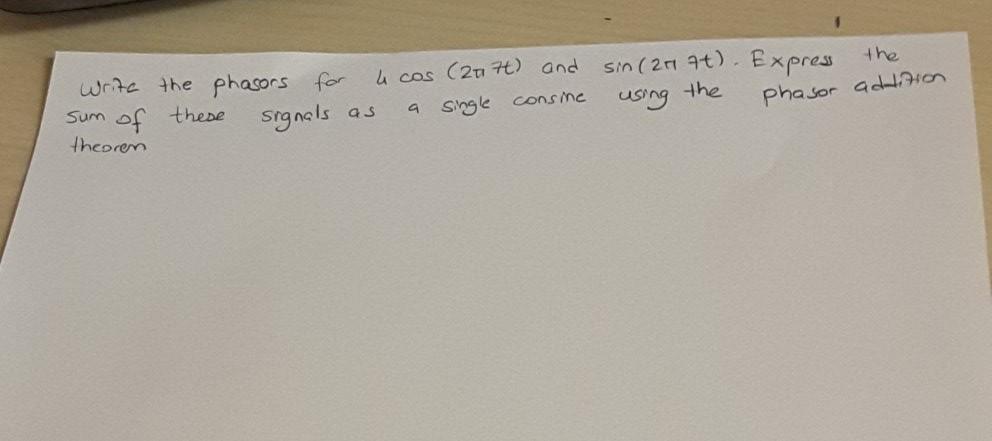 Write the phasors for 4 cos (2π 7t) and sin(2π 7t). Express the
sum of these signals as a single consine using the phasor addition
theorem